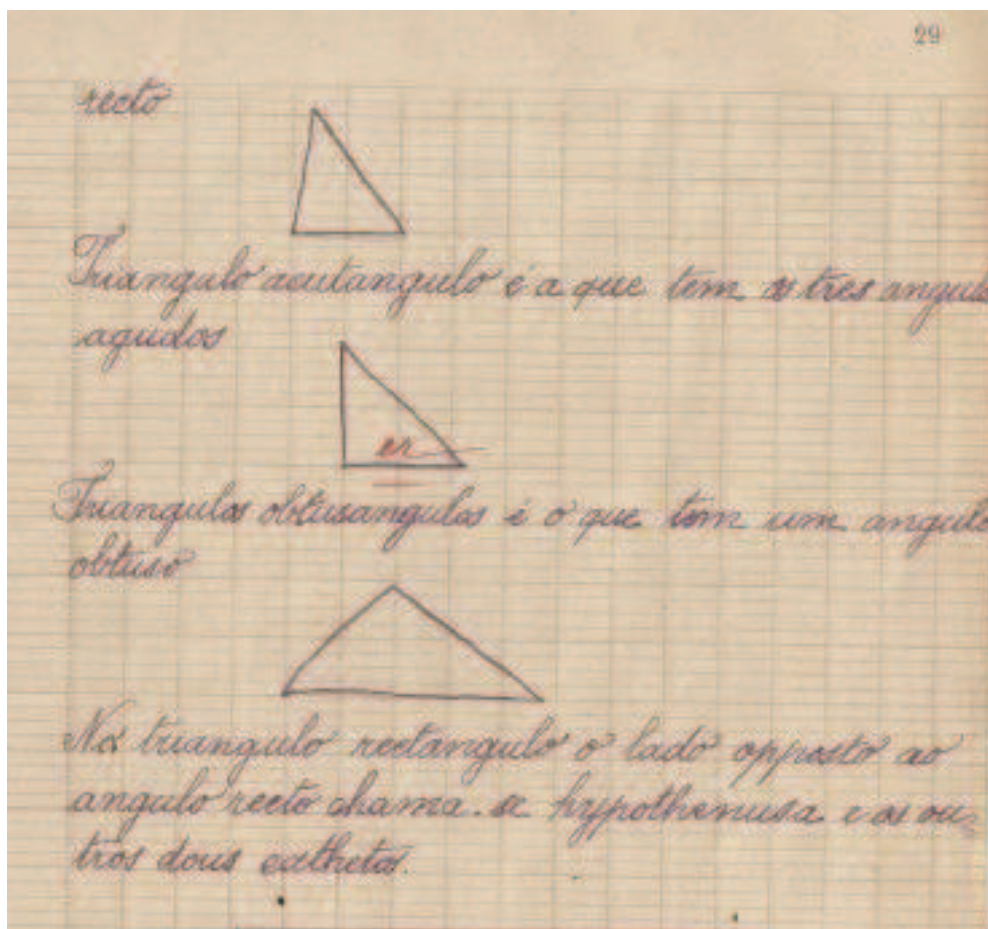 29
recto
Triangulo acutangulo é a que tem os tres angulo
agudos
er
Triangulos obtusangulos é o que tem um angulo
obtuso
No triangulo rectangulo o lado opposto ao
angulo recto chama-se hypothenusa e os ou-
tros dous cathetos.